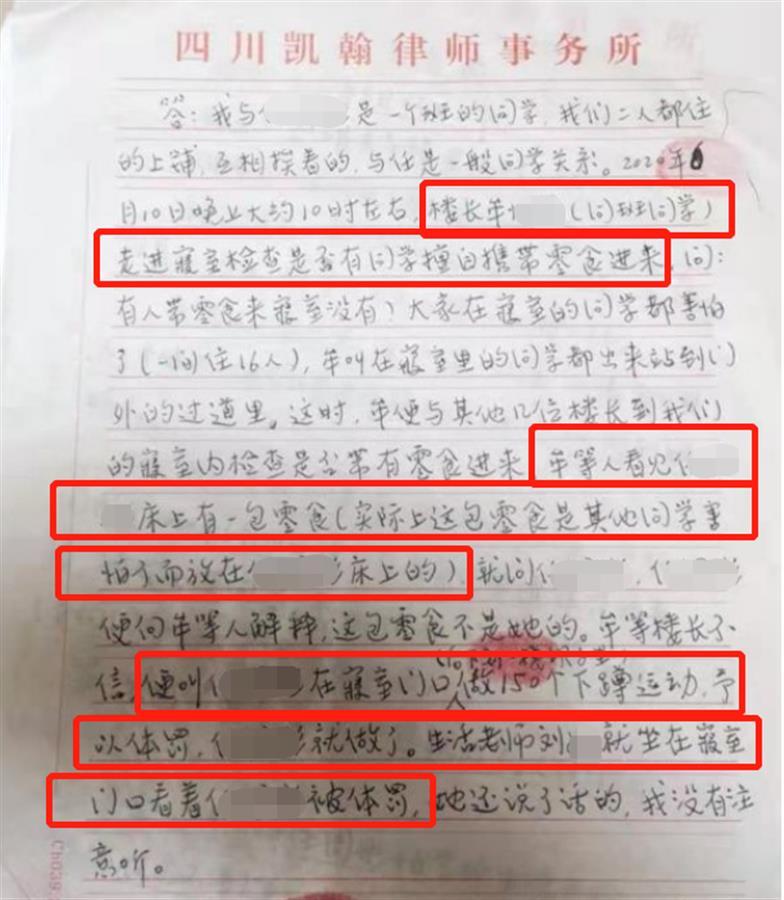 四川凯翰律师事务所
答:我与任 是一个班的同学,我们二人都住
的上铺,互相挨着的,与任是一般同学关系。2020年6
月10日晚上大约10时左右,楼长牟 (同班同学)
走进寝室检查是否有同学擅自携带零食进来,问:
有人带零食来寝室没有?大家在寝室的同学都害怕
了(一间住16人),牟叫在寝室里的同学都出来站到门
外的过道里。这时,牟便与其他几位楼长到我们
的寝室内检查是否带有零食进来,牟等人看见任
床上有一包零食(实际上这包零食是其他同学害
怕了而放在任 床上的),就问任 ,任
便向牟等人解释,这包零食不是她的。牟等楼长不
信,便叫任 在寝室门口做150个下蹲运动,予
以体罚,任 就做了。生活老师刘 就坐在寝室
门口看着任 被体罚,她还说了话的,我没有注
意听。